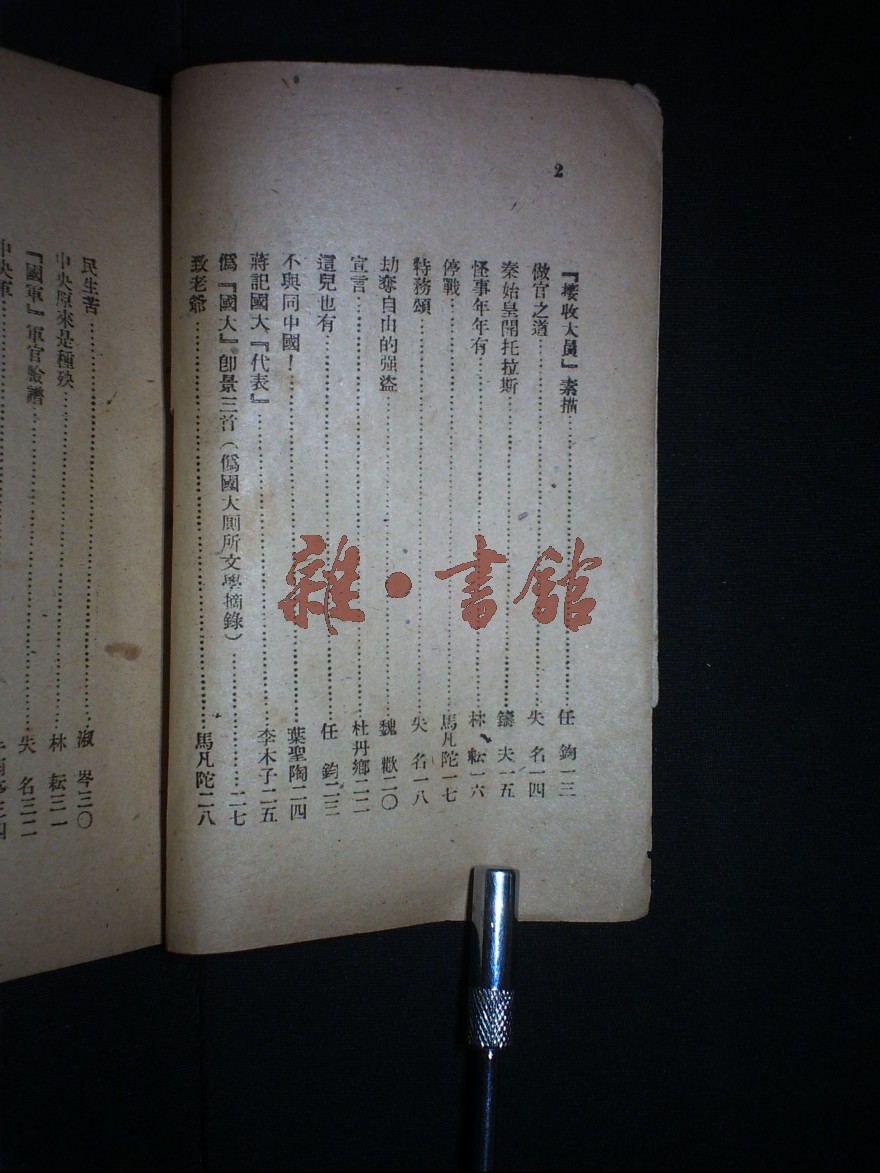 2
『接收大員』素描……………………任 鈞一三
做官之道……………………失 名一四
秦始皇開托拉斯……………………鑄 夫一五
怪事年年有……………………林 耘一六
停戰……………………馬凡陀一七
特務頌……………………失 名一八
劫奪自由的强盜……………………魏 歡二〇
宣言……………………杜丹鄉二二
這兒也有……………………任 鈞二三
不與同中國！……………………葉聖陶二四
蔣記國大『代表』……………………李木子二五
僞『國大』卽景三首（僞國大厠所文學摘錄）……………………二七
致老爺……………………馬凡陀二八
民生苦……………………淑 岑三〇
中央原來是種殃……………………林 耘三一
『國軍』軍官臉譜……………………失 名三二
中央軍
雜·書館